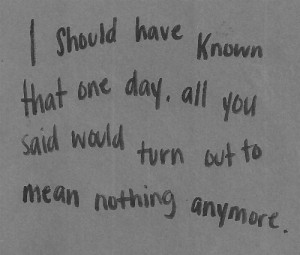 I should have known
that one day, all you
said would turn out to
mean nothing anymore.